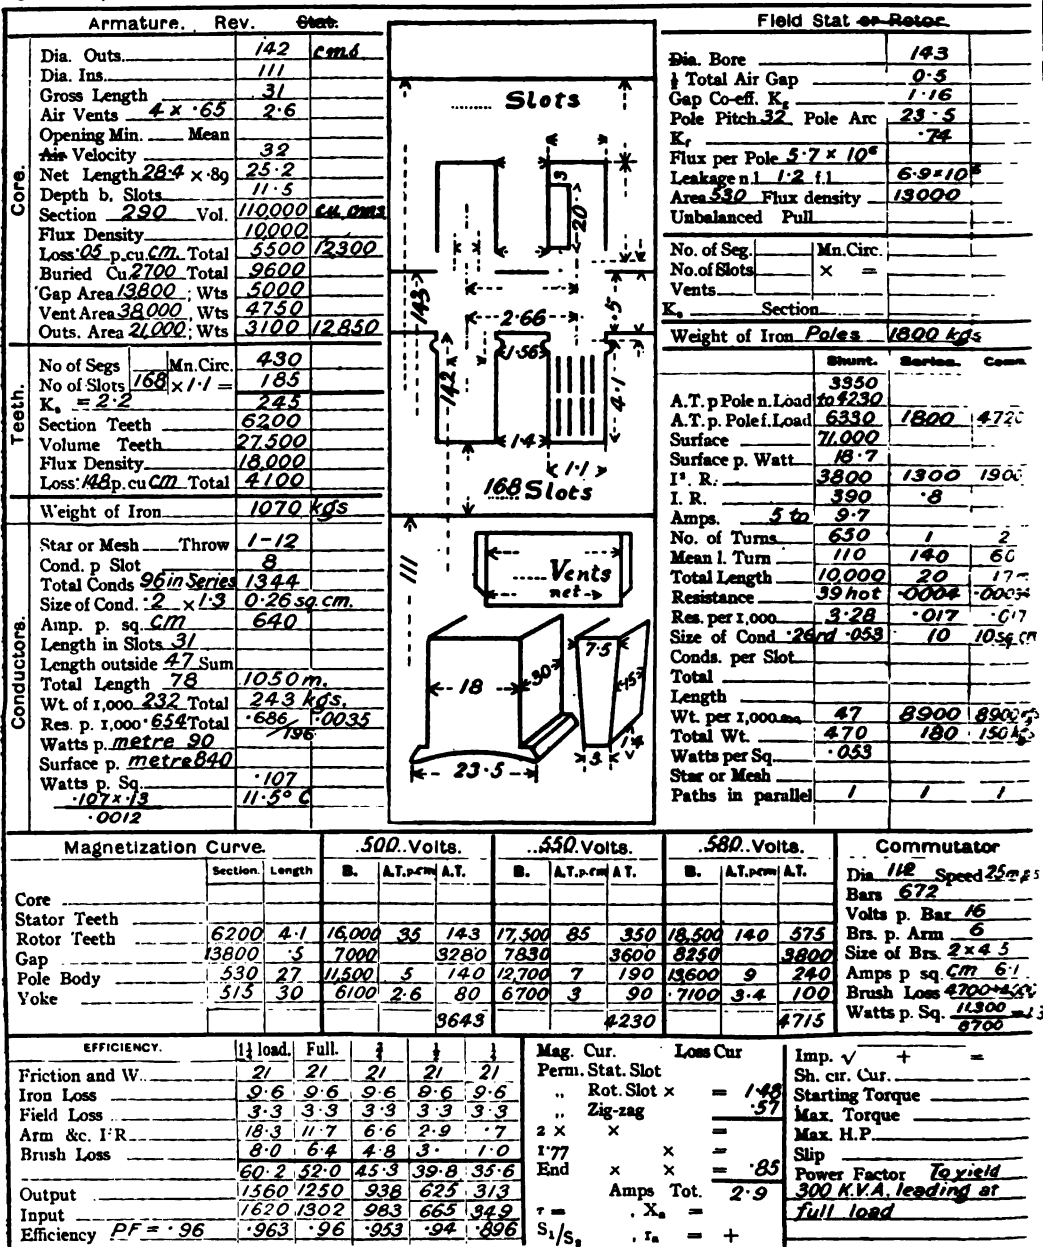 Armature. Rev. Stat.
Dia. Outs. 142 cms
Dia. Ins. 111
Gross Length 31
Air Vents 4 × .65 2.6
Opening Min. Mean
Air Velocity 32
Net Length 28.4 × .89 25.2
Depth b. Slots 11.5
Section 290 Vol. 110,000 cu cms
Flux Density 10,000
Loss .05 p.cu cm. Total 5500 12300
Buried Cu 2700 Total 9600
Gap Area 13,800 ; Wts 5000
Vent Area 38,000 ; Wts 4750
Outs. Area 21,000 ; Wts 3100 12,850
Core.
No of Segs Mn.Circ. 430
No of Slots 168 × 1.1 = 185
K = 2.2 245
Section Teeth 6200
Volume Teeth 27,500
Flux Density 18,000
Loss .148 p. cu cm Total 4100
Teeth.
Weight of Iron 1070 kgs
Star or Mesh Throw 1-12
Cond. p Slot 8
Total Conds 96 in Series 1344
Size of Cond. .2 × 1.3 0.26 sq. cm.
Amp. p. sq. cm 640
Length in Slots 31
Length outside 47 Sum
Total Length 78 1050 m.
Wt. of 1,000 232 Total 243 kgs.
Res. p. 1,000 .654 Total .686/196 .0035
Watts p. metre 90
Surface p. metre 840
Watts p. Sq. .107
.107 × .13 11.5° C
.0012
Conductors.
Slots
3
20
143
.5
2.66
1.56
142
4.1
1.4
1.1
168 Slots
111
Vents
net
18
30
23.5
7.5
15
3
1.4
Field Stat or Rotor.
Dia. Bore 143
½ Total Air Gap 0.5
Gap Co-eff. Kg 1.16
Pole Pitch 32 Pole Arc 23.5
Kf .74
Flux per Pole 5.7 × 10⁶
Leakage n.l 1.2 f.l 6.9 = 10⁶
Area 530 Flux density 13000
Unbalanced Pull
No. of Seg. Mn.Circ.
No. of Slots × =
Vents
K Section
Weight of Iron Poles 1800 kgs
Shunt. Series. Com
A.T. p Pole n. Load 3350 to 4230
A.T. p. Pole f. Load 6330 1800 472
Surface 71,000
Surface p. Watt 18.7
I² R. 3800 1300 190
I. R. 390 .8
Amps. 5 to 9.7
No. of Turns 650 1 2
Mean l. Turn 110 140 60
Total Length 10,000 20 17
Resistance 39 hot .0004
Res. per 1,000 3.28 .017 .017
Size of Cond .26 rd .053 10 10 sq. cm
Conds. per Slot
Total
Length
Wt. per 1,000 47 8900 8900
Total Wt. 470 180 150 kgs
Watts per Sq. .053
Star or Mesh
Paths in parallel 1 1 1
Magnetization Curve. 500 Volts. 550 Volts. 580 Volts.
Section. Length B. A.T.p.cm A.T. B. A.T.p.cm A T. B. A.T.p.cm A.T.
Core
Stator Teeth
Rotor Teeth 6200 4.1 16,000 35 143 17,500 85 350 18,500 140 575
Gap 13800 .5 7000 3280 7830 3600 8250 3800
Pole Body 530 27 11,500 5 140 12,700 7 190 13,600 9 240
Yoke 515 30 6100 2.6 80 6700 3 90 7100 3.4 100
3643 4230 4715
Commutator
Dia. 112 Speed 25 m.p.s
Bars 672
Volts p. Bar 16
Brs. p. Arm 6
Size of Brs. 2 × 4 5
Amps p sq. cm 6.1
Brush Loss 4700+
Watts p. Sq. 11,300/8700 = 1.3
EFFICIENCY. 1¼ load. Full. ¾ ½ ¼
Friction and W. 21 21 21 21 21
Iron Loss 9.6 9.6 9.6 9.6 9.6
Field Loss 3.3 3.3 3.3 3.3 3.3
Arm &c. I²R 18.3 11.7 6.6 2.9 .7
Brush Loss 8.0 6.4 4.8 3. 1.0
60.2 52.0 45.3 39.8 35.6
Output 1560 1250 938 625 313
Input 1620 1302 983 665 349
Efficiency PF = .96 .963 .96 .953 .94 .896
Mag. Cur. Loss Cur
Perm. Stat. Slot
„ Rot. Slot × = 1.48
„ Zig-zag .57
2 × × =
1.77 × =
End × × = .85
Amps Tot. 2.9
τ = . Xa =
S1/S2 . ra = +
Imp. √ + =
Sh. cir. Cur.
Starting Torque
Max. Torque
Max. H.P.
Slip
Power Factor To yield
300 K.V.A. leading at
full load